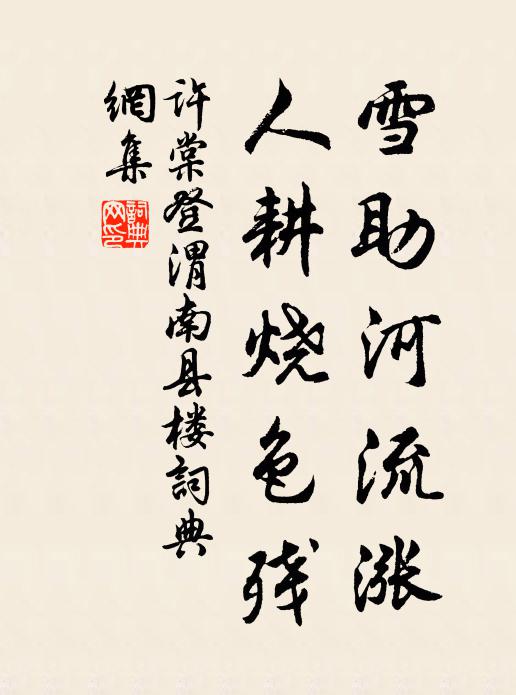 雪助河流涨
人耕烧色残
许棠登渭南县楼詞典
網集
詞典网印